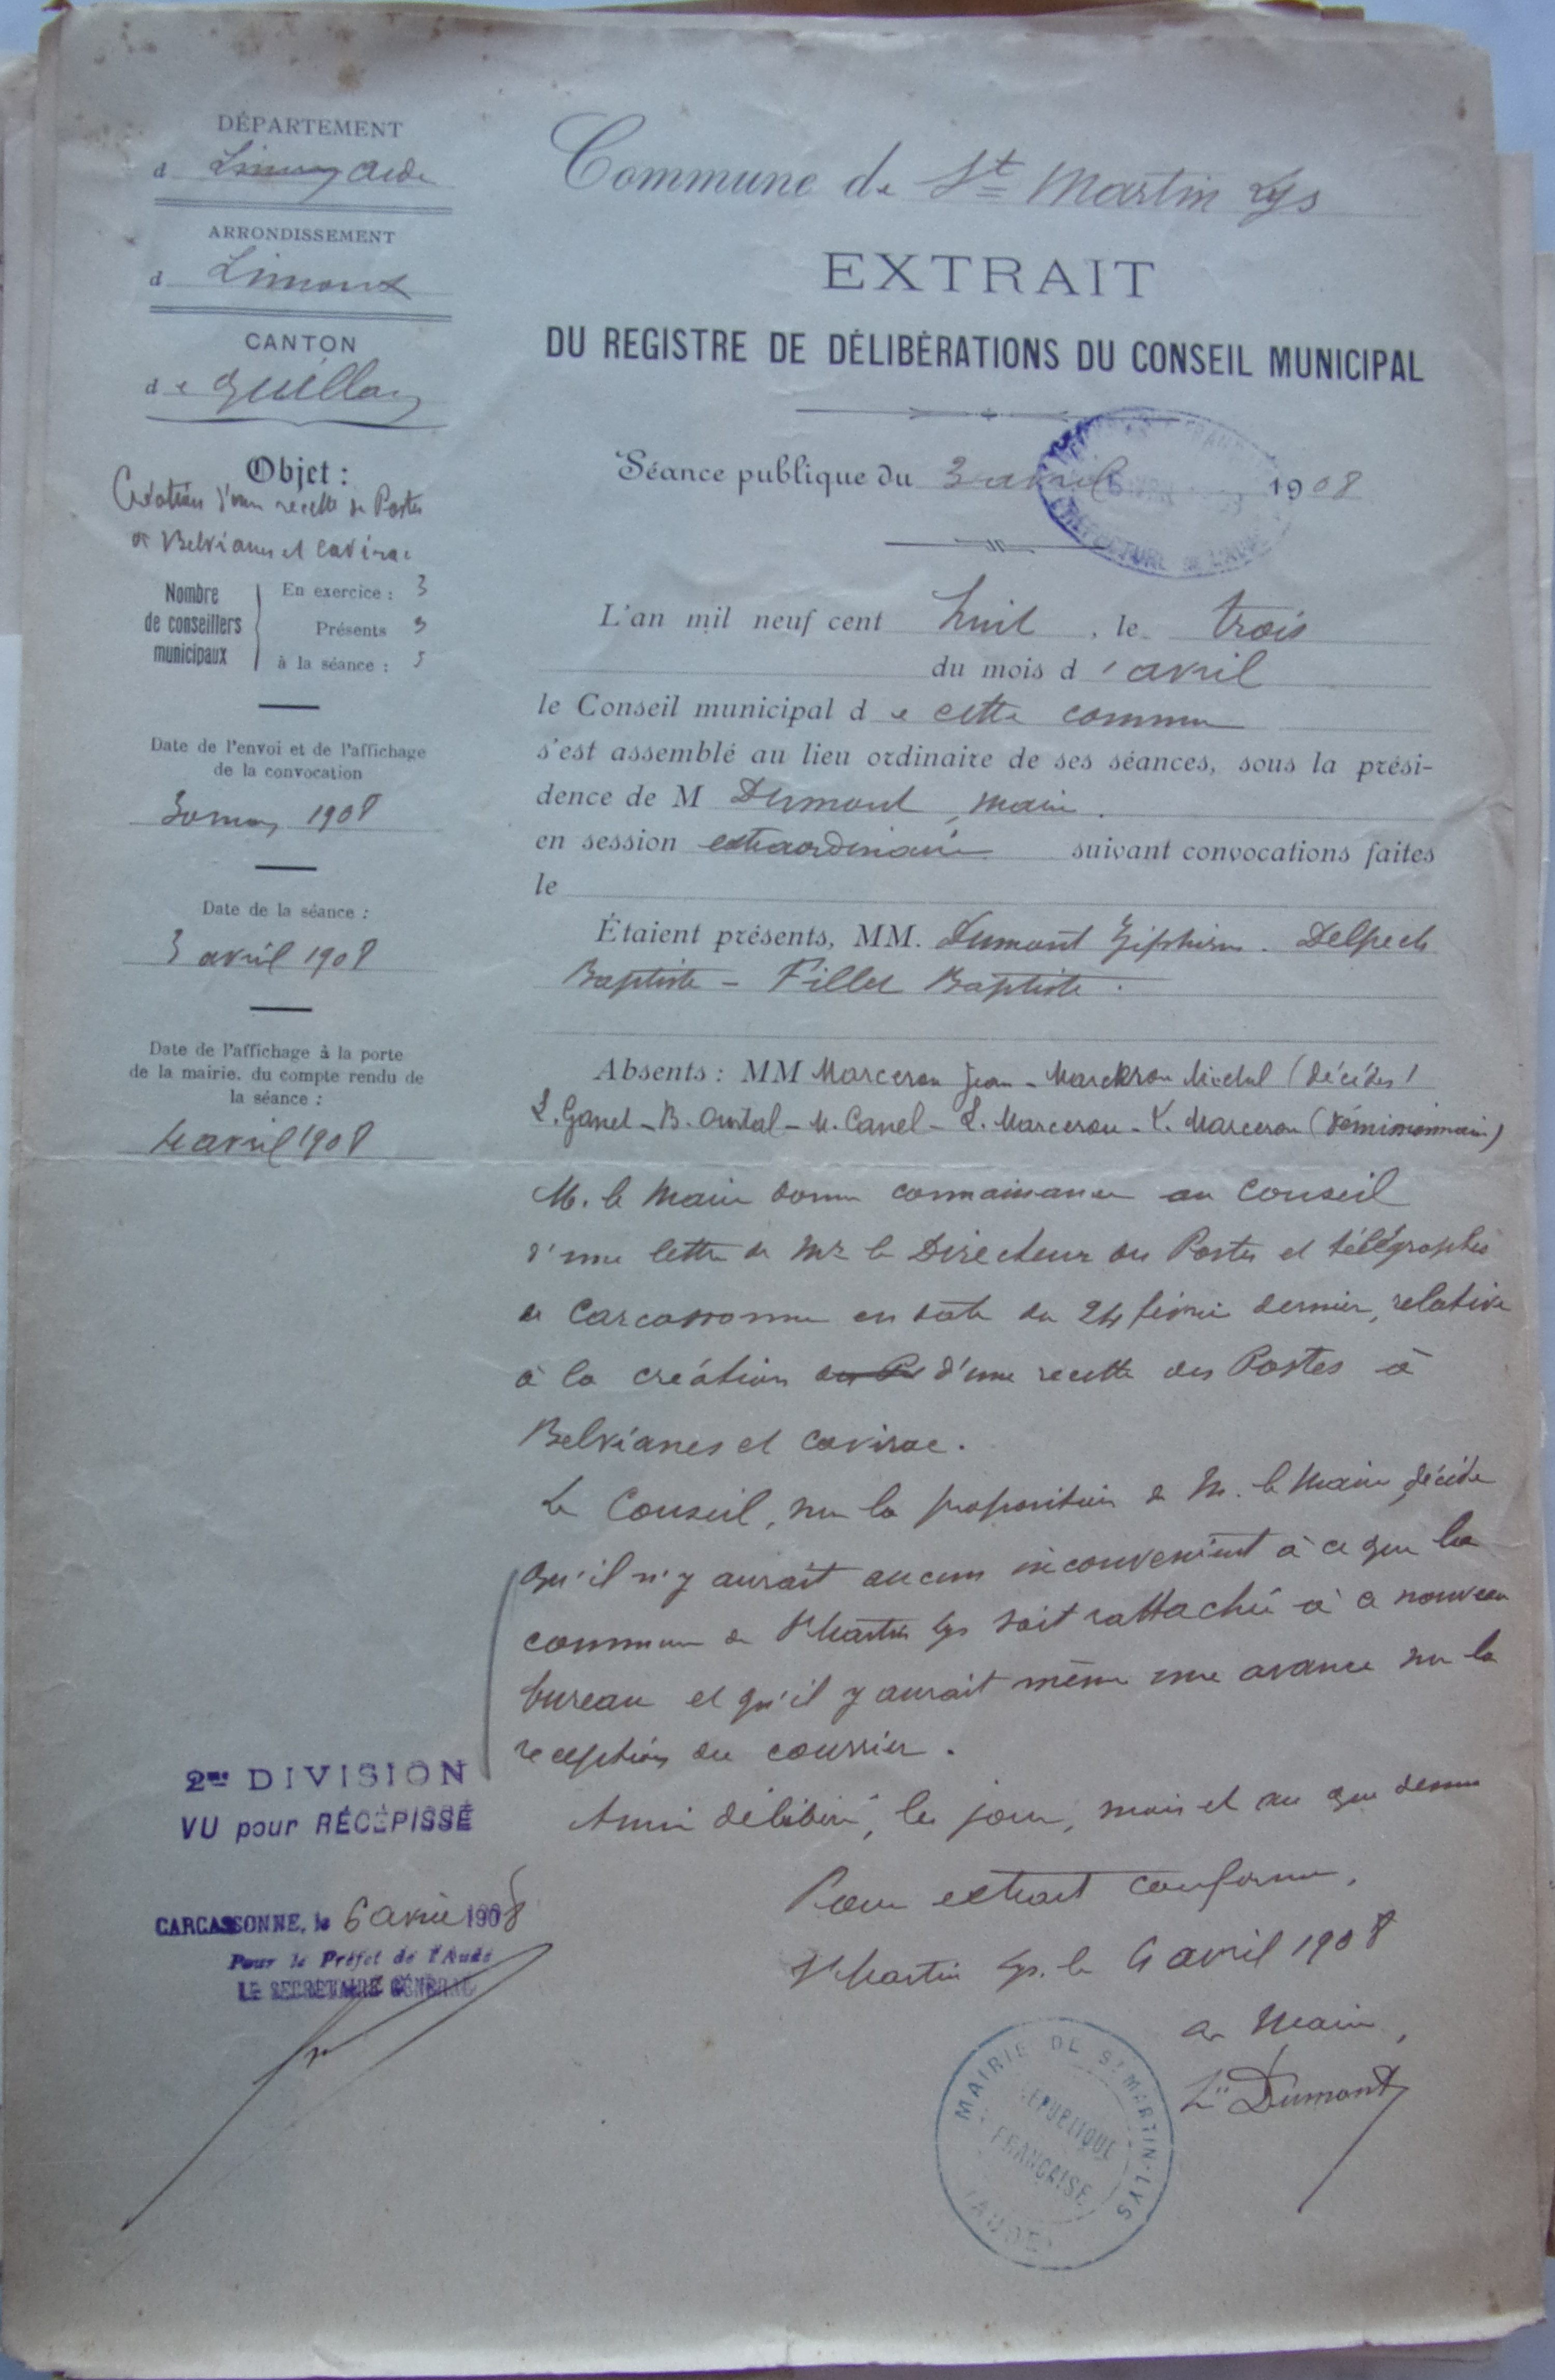 DÉPARTEMENT
d Aude
ARRONDISSEMENT
d Limoux
CANTON
de Quillan
Objet :
Création d'une recette de Postes
à Belvianes et Cavirac
Nombre de conseillers municipaux
En exercice : 3
Présents 3
à la séance : 3
Date de l'envoi et de l'affichage
de la convocation
30 mars 1908
Date de la séance :
3 avril 1908
Date de l'affichage à la porte
de la mairie, du compte rendu de
la séance :
4 avril 1908
2me DIVISION
VU pour RÉCÉPISSÉ
CARCASSONNE, le 6 avril 1908
Pour le Préfet de l'Aude
LE SECRÉTAIRE GÉNÉRAL
Commune de St Martin Lys
EXTRAIT
DU REGISTRE DE DÉLIBÉRATIONS DU CONSEIL MUNICIPAL
Séance publique du 3 avril 1908
PRÉFECTURE DE L'AUDE
L'an mil neuf cent huit, le trois
du mois d'avril
le Conseil municipal de cette commune
s'est assemblé au lieu ordinaire de ses séances, sous la prési-
dence de M Dumont, maire.
en session extraordinaire suivant convocations faites
le
Étaient présents, MM. Dumont Delpech
Baptiste - Fillol Baptiste.
Absents : MM Marceron Jean - Marceron Michel (décédés)
L. Ganel - B. - M. Canel - L. Marcerou - Marceron (démissionnaires)
M. le Maire donne connaissance au Conseil
d'une lettre de Mr le Directeur des Postes et télégraphes
de Carcassonne en date du 24 février dernier, relative
à la création d'une recette des Postes à
Belvianes et Cavirac.
Le Conseil, sur la proposition de M. le Maire, décide
qu'il n'y aurait aucun inconvenient à ce que la
commune de St Martin Lys soit rattachée à ce nouveau
bureau et qu'il y aurait même une avance sur la
reception du courrier.
Ainsi délibéré, les jour, mois et an que dessus
Pour extrait conforme,
St Martin Lys, le 4 avril 1908
Le Maire,
Dumont
MAIRIE DE ST MARTIN-LYS
RÉPUBLIQUE
FRANÇAISE
(AUDE)